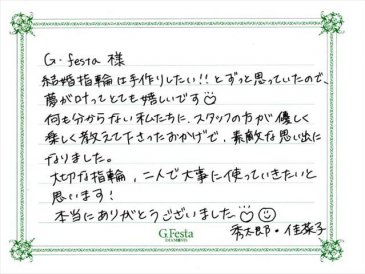 G・festa 様
結婚指輪は手作りしたい!!とずっと思っていたので、
夢が叶ってとても嬉しいです
何も分からない私たちに、スタッフの方が優しく
楽しく教えて下さったおかげで、素敵な思い出に
なりました。
大切な指輪、二人で大事に使っていきたいと
思います!
本当にありがとうございました
秀太郎・佳菜子
G.Festa
DIAMONDS